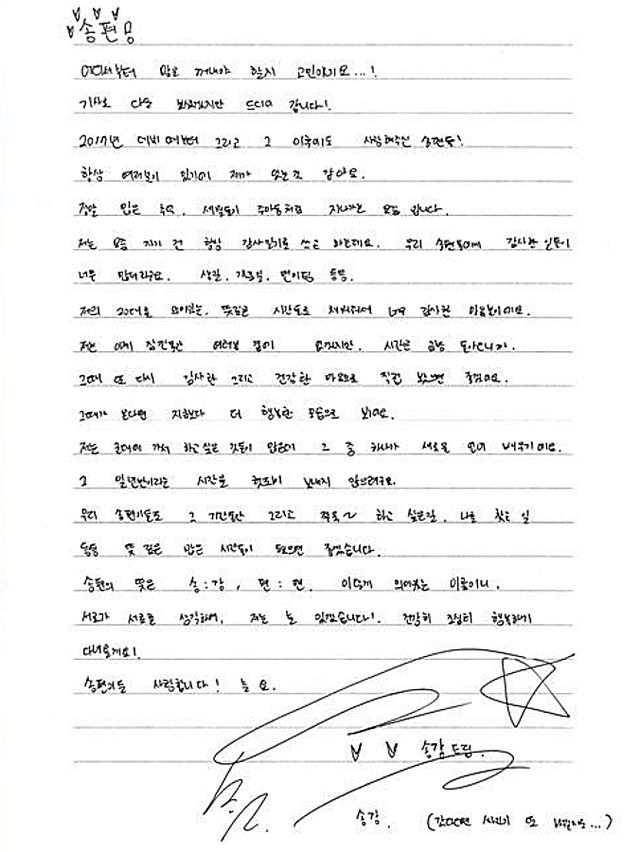 송편 ♡
어디서부터 말을 꺼내야 할지 고민이네요...!
기사로 다들 보셨겠지만 드디어 갑니다!
2017년 데뷔 때부터 그리고 그 이후에도 사랑해주신 송편들!
항상 여러분이 있기에 제가 있는 것 같아요.
정말 많은 추억, 세월들이 주마등처럼 지나가는 요즘 입니다.
저는 요즘 자기 전 항상 감사일기를 쓰고 하는데요. 우리 송편들에게 감사한 일들이
너무 많더라구요. 생일, 기념일, 팬미팅 등등
저의 20대를 의미있는, 뜻깊은 시간들로 채워줘서 너무 감사한 마음뿐이에요.
저는 이제 잠깐동안 여러분 곁에 없겠지만, 시간은 금방 돌아오니까,
그때 또 다시 감사한 그리고 건강한 마음으로 직접 봤으면 좋겠어요.
그때가 온다면 지금보다 더 행복한 모습으로 봐요.
저는 군대에 가서 하고 싶은 것들이 많은데 그 중 하나가 새로운 언어 배우기에요.
그 일년반이라는 시간을 헛되이 보내지 않으려구요.
우리 송편이들도 그 기간동안 그리고 쭈욱~ 하고 싶은걸, 나를 찾는 일
등등 뜻 깊은 많은 시간들이 됐으면 좋겠습니다.
송편의 뜻은 송:강, 편:편. 이렇게 의미있는 이름이니,
서로가 서로를 생각하며, 저는 늘 있겠습니다! 건강히 조심히 행복하게
다녀올게요!
송편이들 사랑합니다! 늘 요.
♡ ♡ 송강 드림.
송강. (간다면 사진이 또 ...)